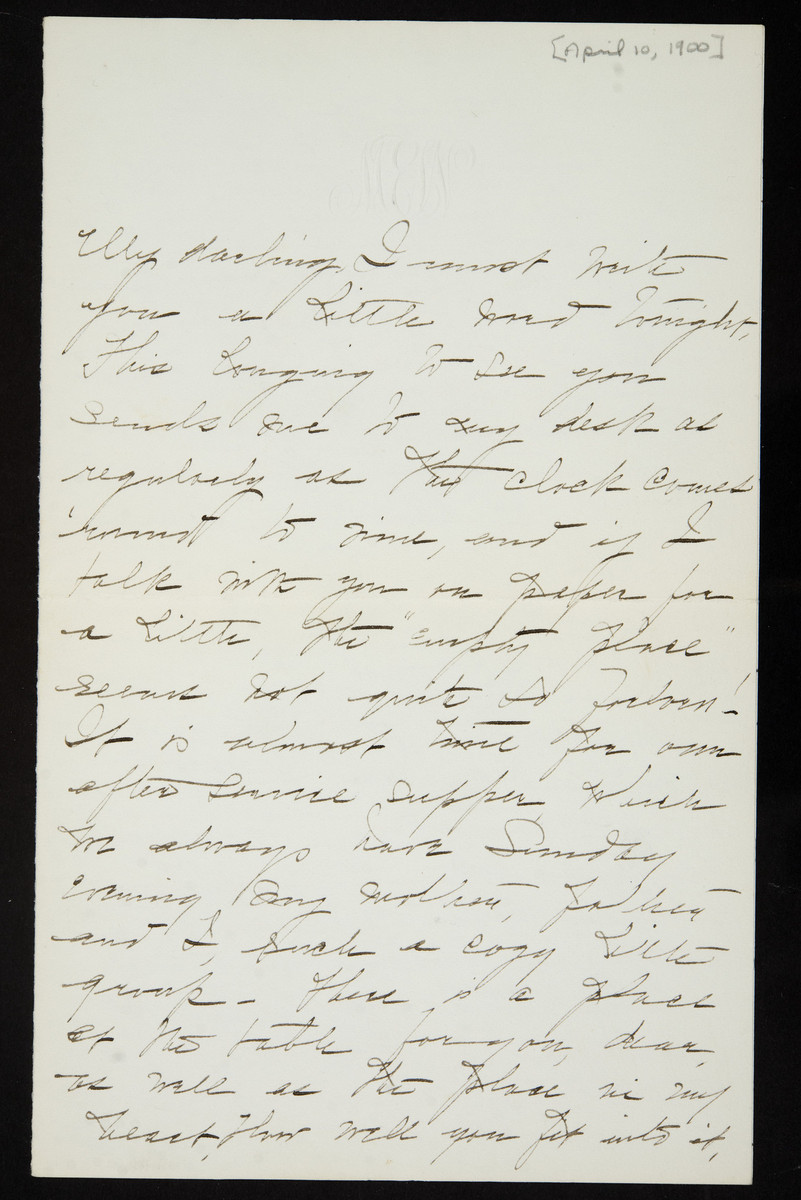 [April 10, 1900]
My darling, I must write
you a little word tonight.
This longing to see you
sends me to my desk as
regularly as the clock comes
'round to nine, and if I
talk with you on paper for
a little, the "empty place"
seems not quite so forlorn!
It is almost time for our
after service supper, which
we always have Sunday
evening, my mother, father
and I, such a cozy little
group - there is a place
at the table for you, dear,
as well as the place in my
heart, How well you fit into it,